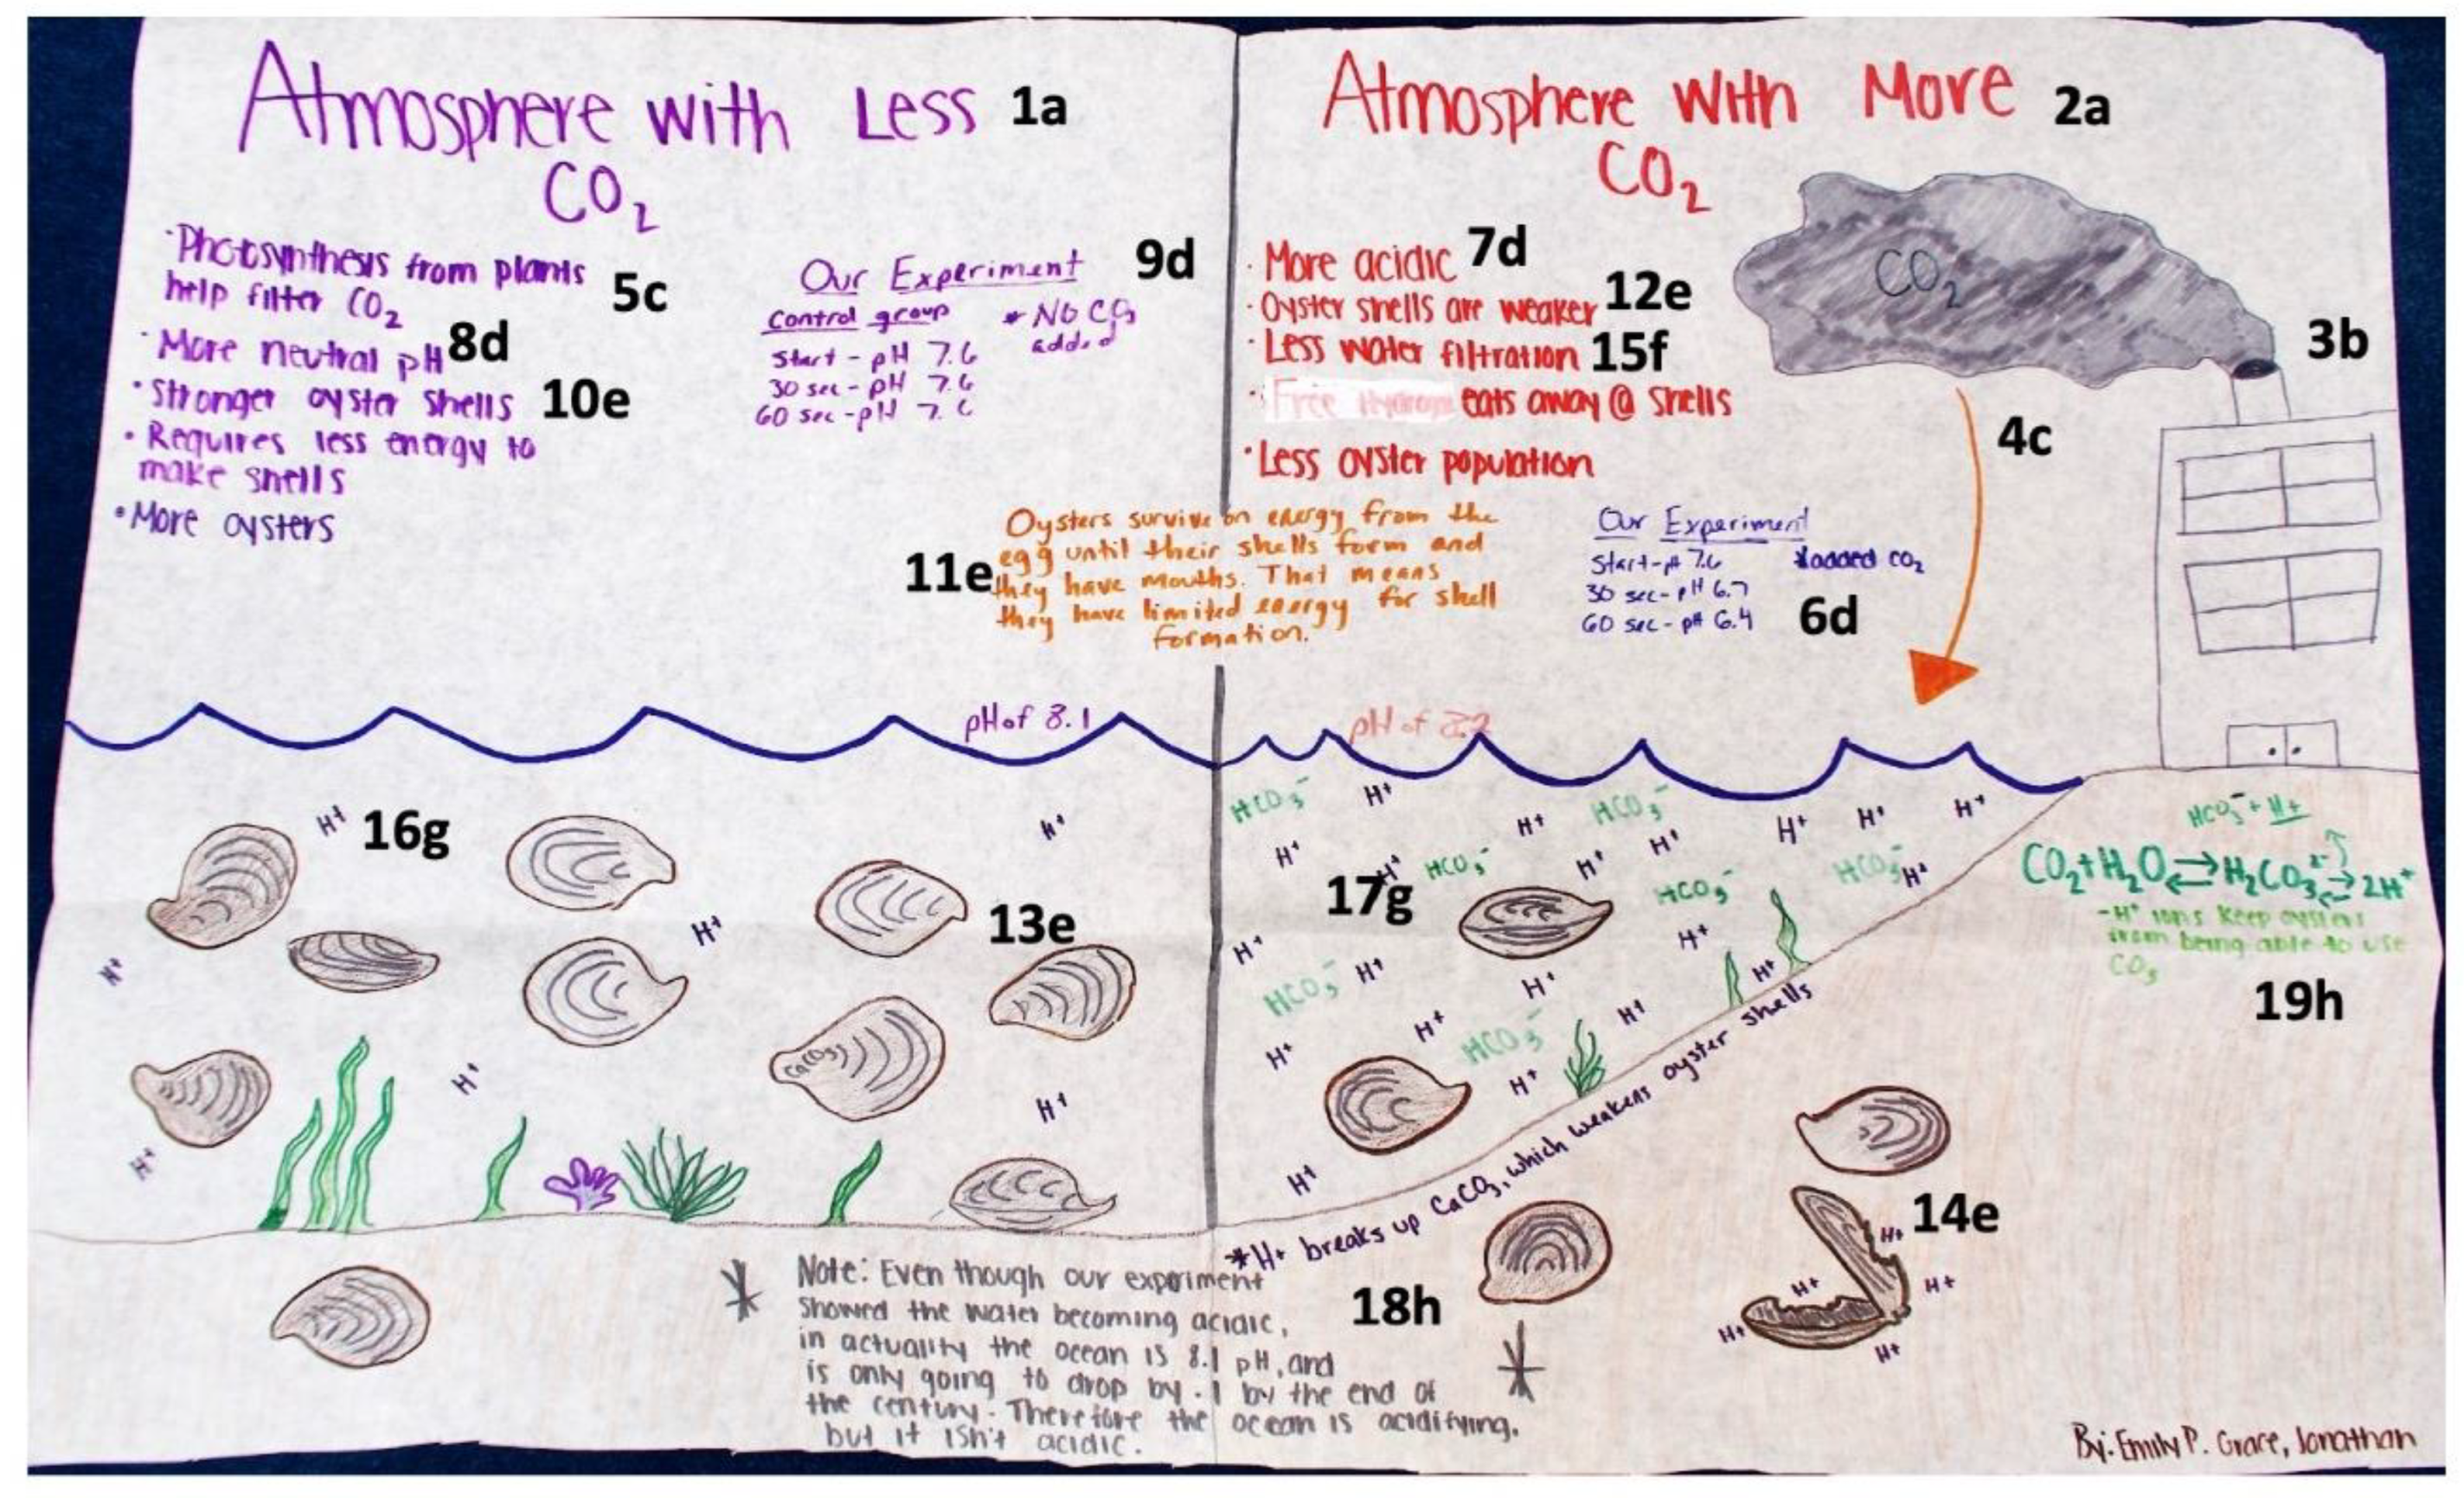 Atmosphere with Less 1a
CO₂
·Photosynthesis from plants
help filter CO₂ 5c
·More neutral pH 8d
·Stronger oyster shells 10e
·Requires less energy to
make shells
·More oysters
Our Experiment 9d
Control group
* No CO₂
added
Start - pH 7.6
30 sec - pH 7.6
60 sec - pH 7.6
Atmosphere With More 2a
CO₂
· More acidic 7d
· Oyster shells are weaker 12e
· Less water filtration 15f
· Free eats away @ shells
·Less oyster population
CO₂
3b
4c
11e
Oysters survive on energy from the
egg until their shells form and
they have mouths. That means
they have limited energy for shell
formation.
Our Experiment
*added CO₂
Start-pH 7.6
30 sec-pH 6.7
60 sec-pH 6.4
6d
pH of 8.1
pH of
H⁺ 16g
H⁺
H⁺
H⁺
13e
H⁺
CaCO₃
H⁺
H⁺
HCO₃⁻ H⁺ HCO₃⁻ H⁺ H⁺ H⁺
H⁺ H⁺ H⁺ H⁺
H⁺ HCO₃⁻ HCO₃⁻ HCO₃⁻ H⁺
17g
H⁺ H⁺
HCO₃⁻ H⁺ H⁺ H⁺
H⁺ H⁺
H⁺ HCO₃⁻ H⁺
H⁺
HCO₃⁻ + H+
CO₂+H₂O⇄H₂CO₃²⁻⇄2H⁺
-H⁺ ions keep oysters
from being able to use
CO₃
19h
*H+ breaks up CaCO₃, which weakens oyster shells
18h
14e
H+
H+
H+
H+
H+
Note: Even though our experiment
showed the water becoming acidic,
in actuality the ocean is 8.1 pH, and
is only going to drop by .1 by the end of
the century. Therefore the ocean is acidifying.
but it isn't acidic.
By: Emily P. Grace, Jonathan